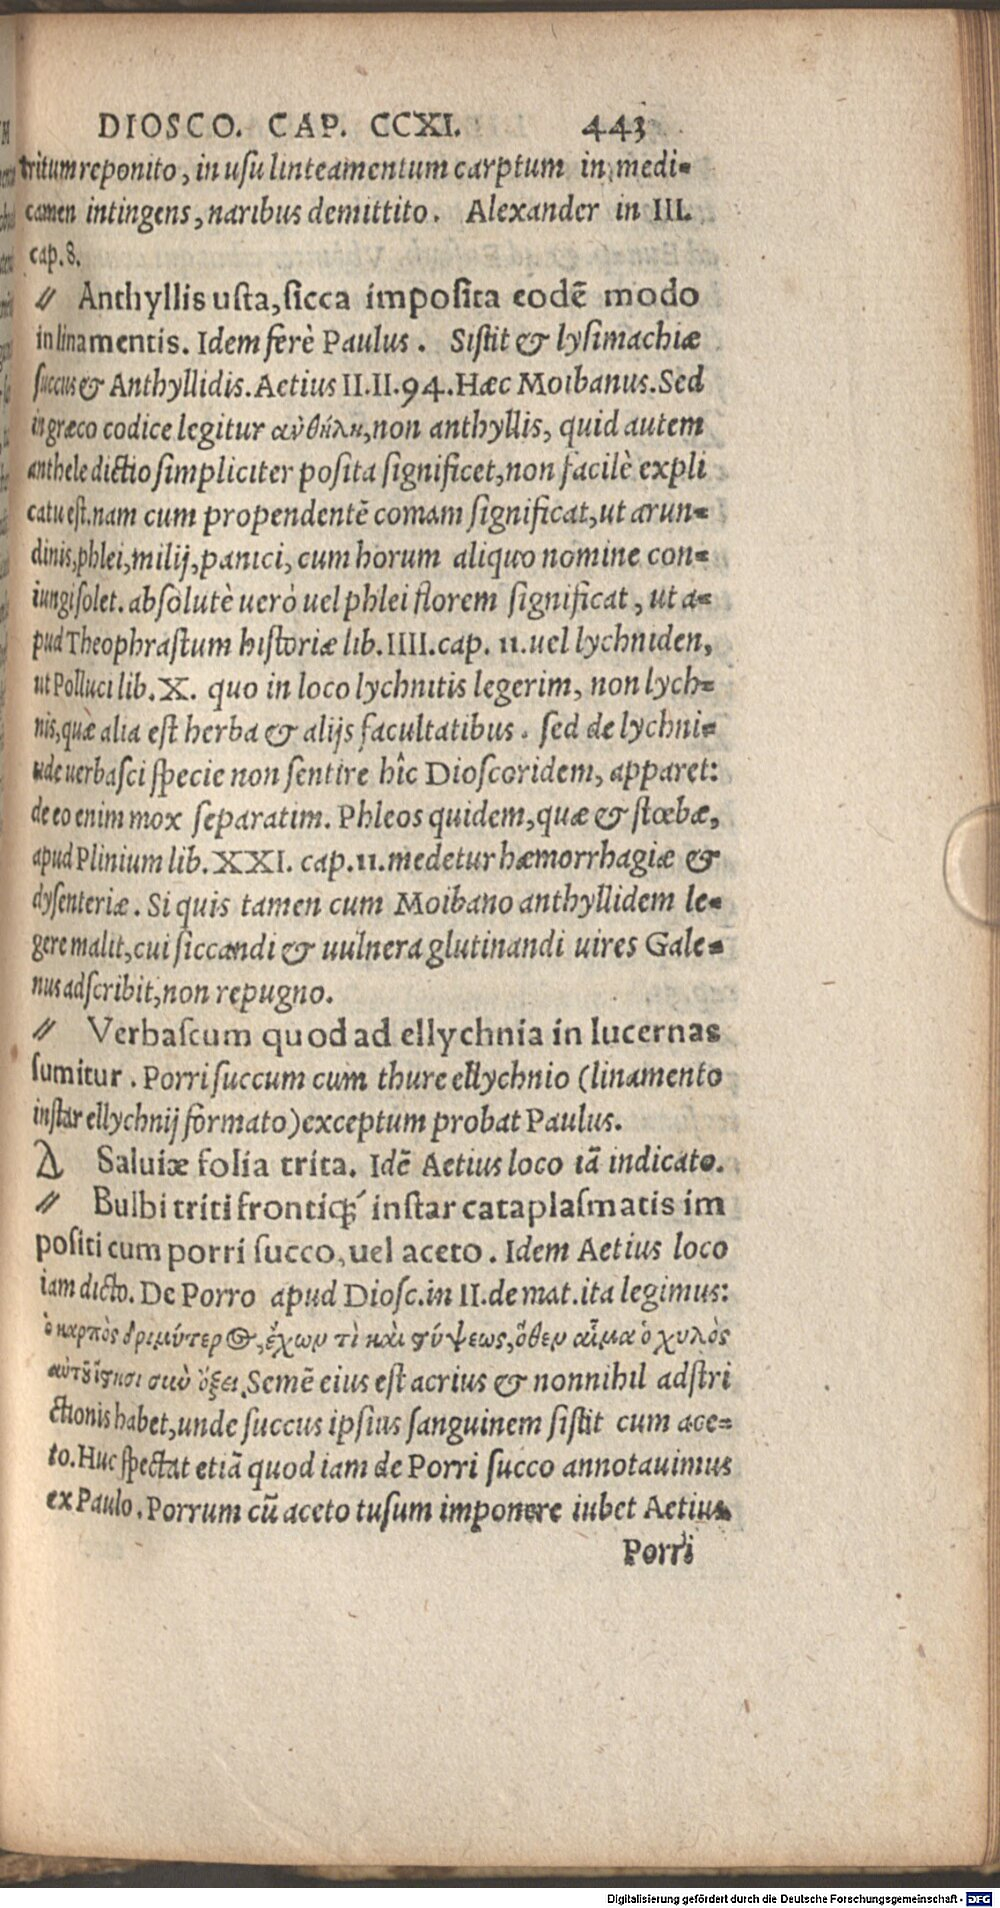 DIOSCO. CAP. CCXI. 443
tritum reponito, in usu linteamentum carptum in medi-
camen intingens, naribus demittito. Alexander in III.
cap. 8.
〃 Anthyllis usta, sicca imposita eodē modo
in linamentis. Idem ferè Paulus. Sistit & lysimachiæ
succus & Anthyllidis. Aetius II. II. 94. Hæc Moibanus. Sed
in græco codice legitur ἀνθήλη, non anthyllis, quid autem
anthele dictio simpliciter posita significet, non facilè expli
catu est. nam cum propendentē comam significat, ut arun-
dinis, phlei, milij, panici, cum horum aliquo nomine con-
iungi solet. absolutè uerò uel phlei florem significat, ut a-
pud Theophrastum historiæ lib. IIII. cap. 11. uel lychniden,
ut Polluci lib. X. quo in loco lychnitis legerim, non lych-
nis, quæ alia est herba & alijs facultatibus. sed de lychni-
de uerbasci specie non sentire hîc Dioscoridem, apparet:
de eo enim mox separatim. Phleos quidem, quæ & stœbæ,
apud Plinium lib. XXI. cap. 11. medetur hæmorrhagiæ &
dysenteriæ. Si quis tamen cum Moibano anthyllidem le-
gere malit, cui siccandi & uulnera glutinandi uires Gale-
nus adscribit, non repugno.
〃 Verbascum quod ad ellychnia in lucernas
sumitur. Porri succum cum thure ellychnio (linamento
instar ellychnij formato) exceptum probat Paulus.
Δ Saluiæ folia trita. Idē Aetius loco iā indicato.
〃 Bulbi triti frontiq́; instar cataplasmatis im
positi cum porri succo, uel aceto. Idem Aetius loco
iam dicto. De Porro apud Diosc. in II. de mat. ita legimus:
ὁ καρπὸς δριμύτερος, ἔχων τὶ καὶ στύψεως, ὅθεν αἷμα ὁ χυλὸς
αὐτοῦ ἵστησι σὺν ὄξει. Semē eius est acrius & nonnihil adstri
ctionis habet, unde succus ipsius sanguinem sistit cum ace-
to. Huc spectat etiā quod iam de Porri succo annotauimus
ex Paulo. Porrum cū aceto tusum imponere iubet Aetius.
Porri
Digitalisierung gefördert durch die Deutsche Forschungsgemeinschaft - DFG